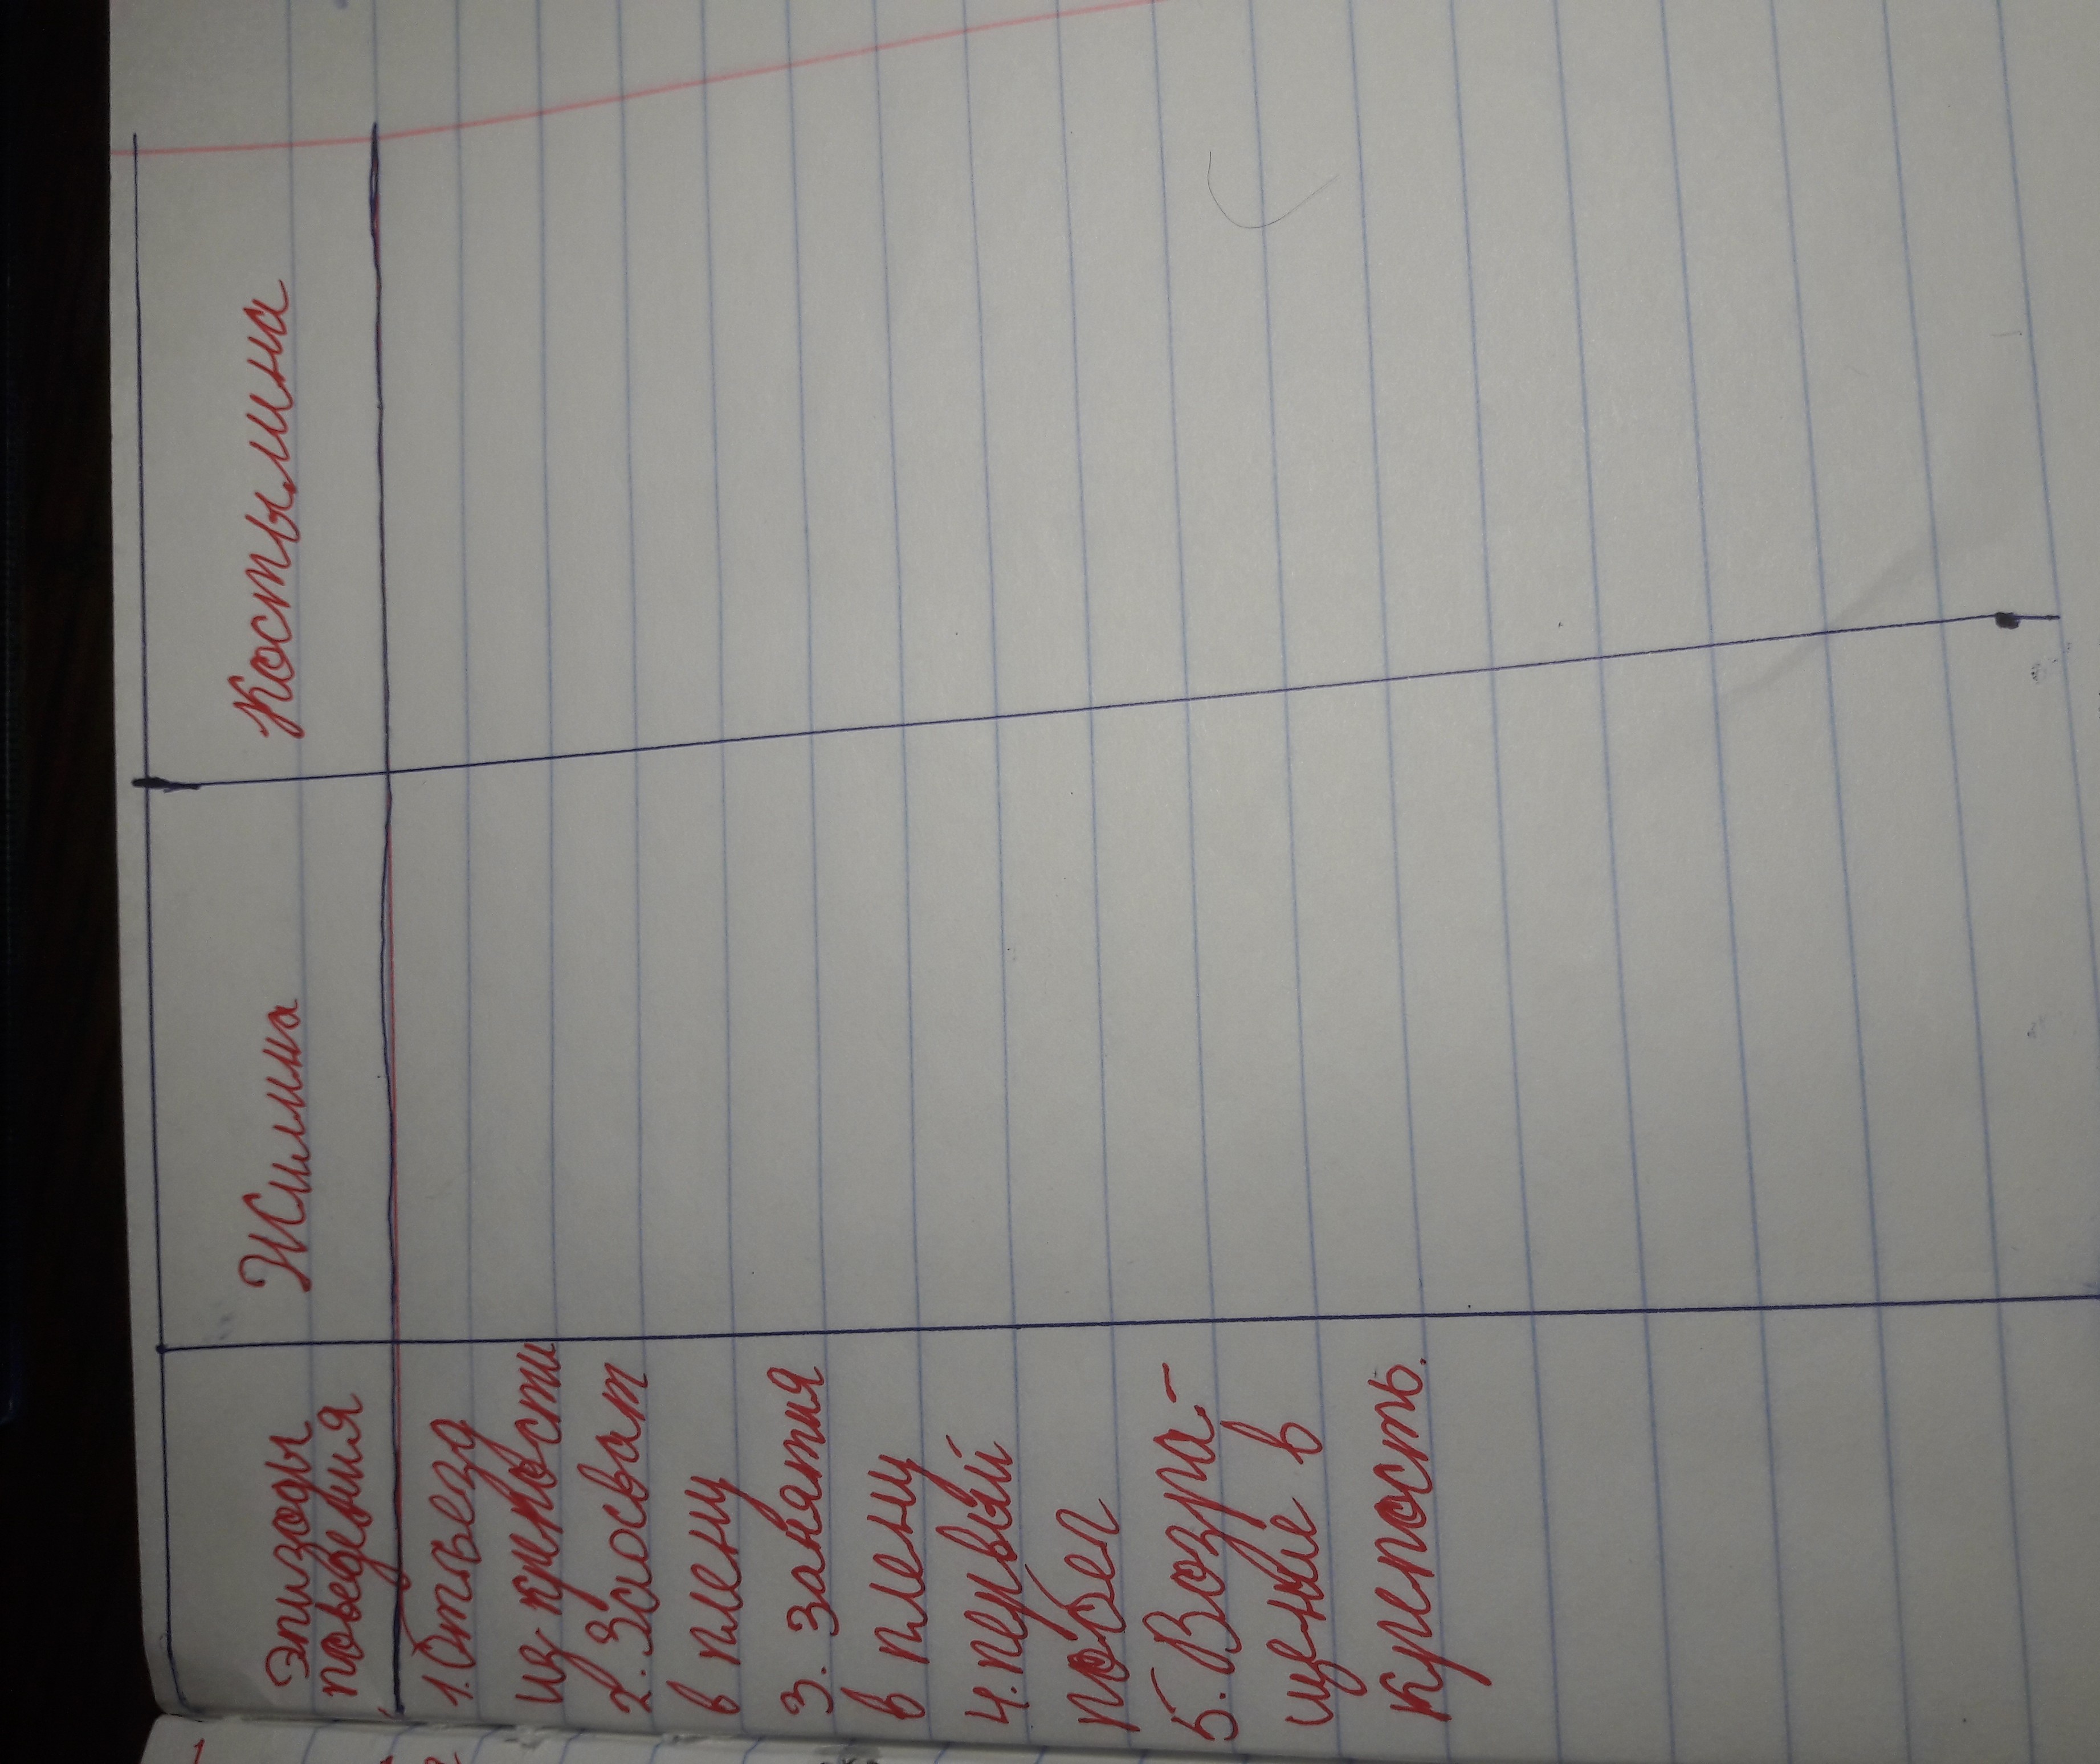 Эпизоды
поведения
Жилина
Костылина
1. Отъезд
из крепости
2. Зпосват
в плену
3. занятия
в плену
4. первый
побег
5. Возра-
щение в
крепость.